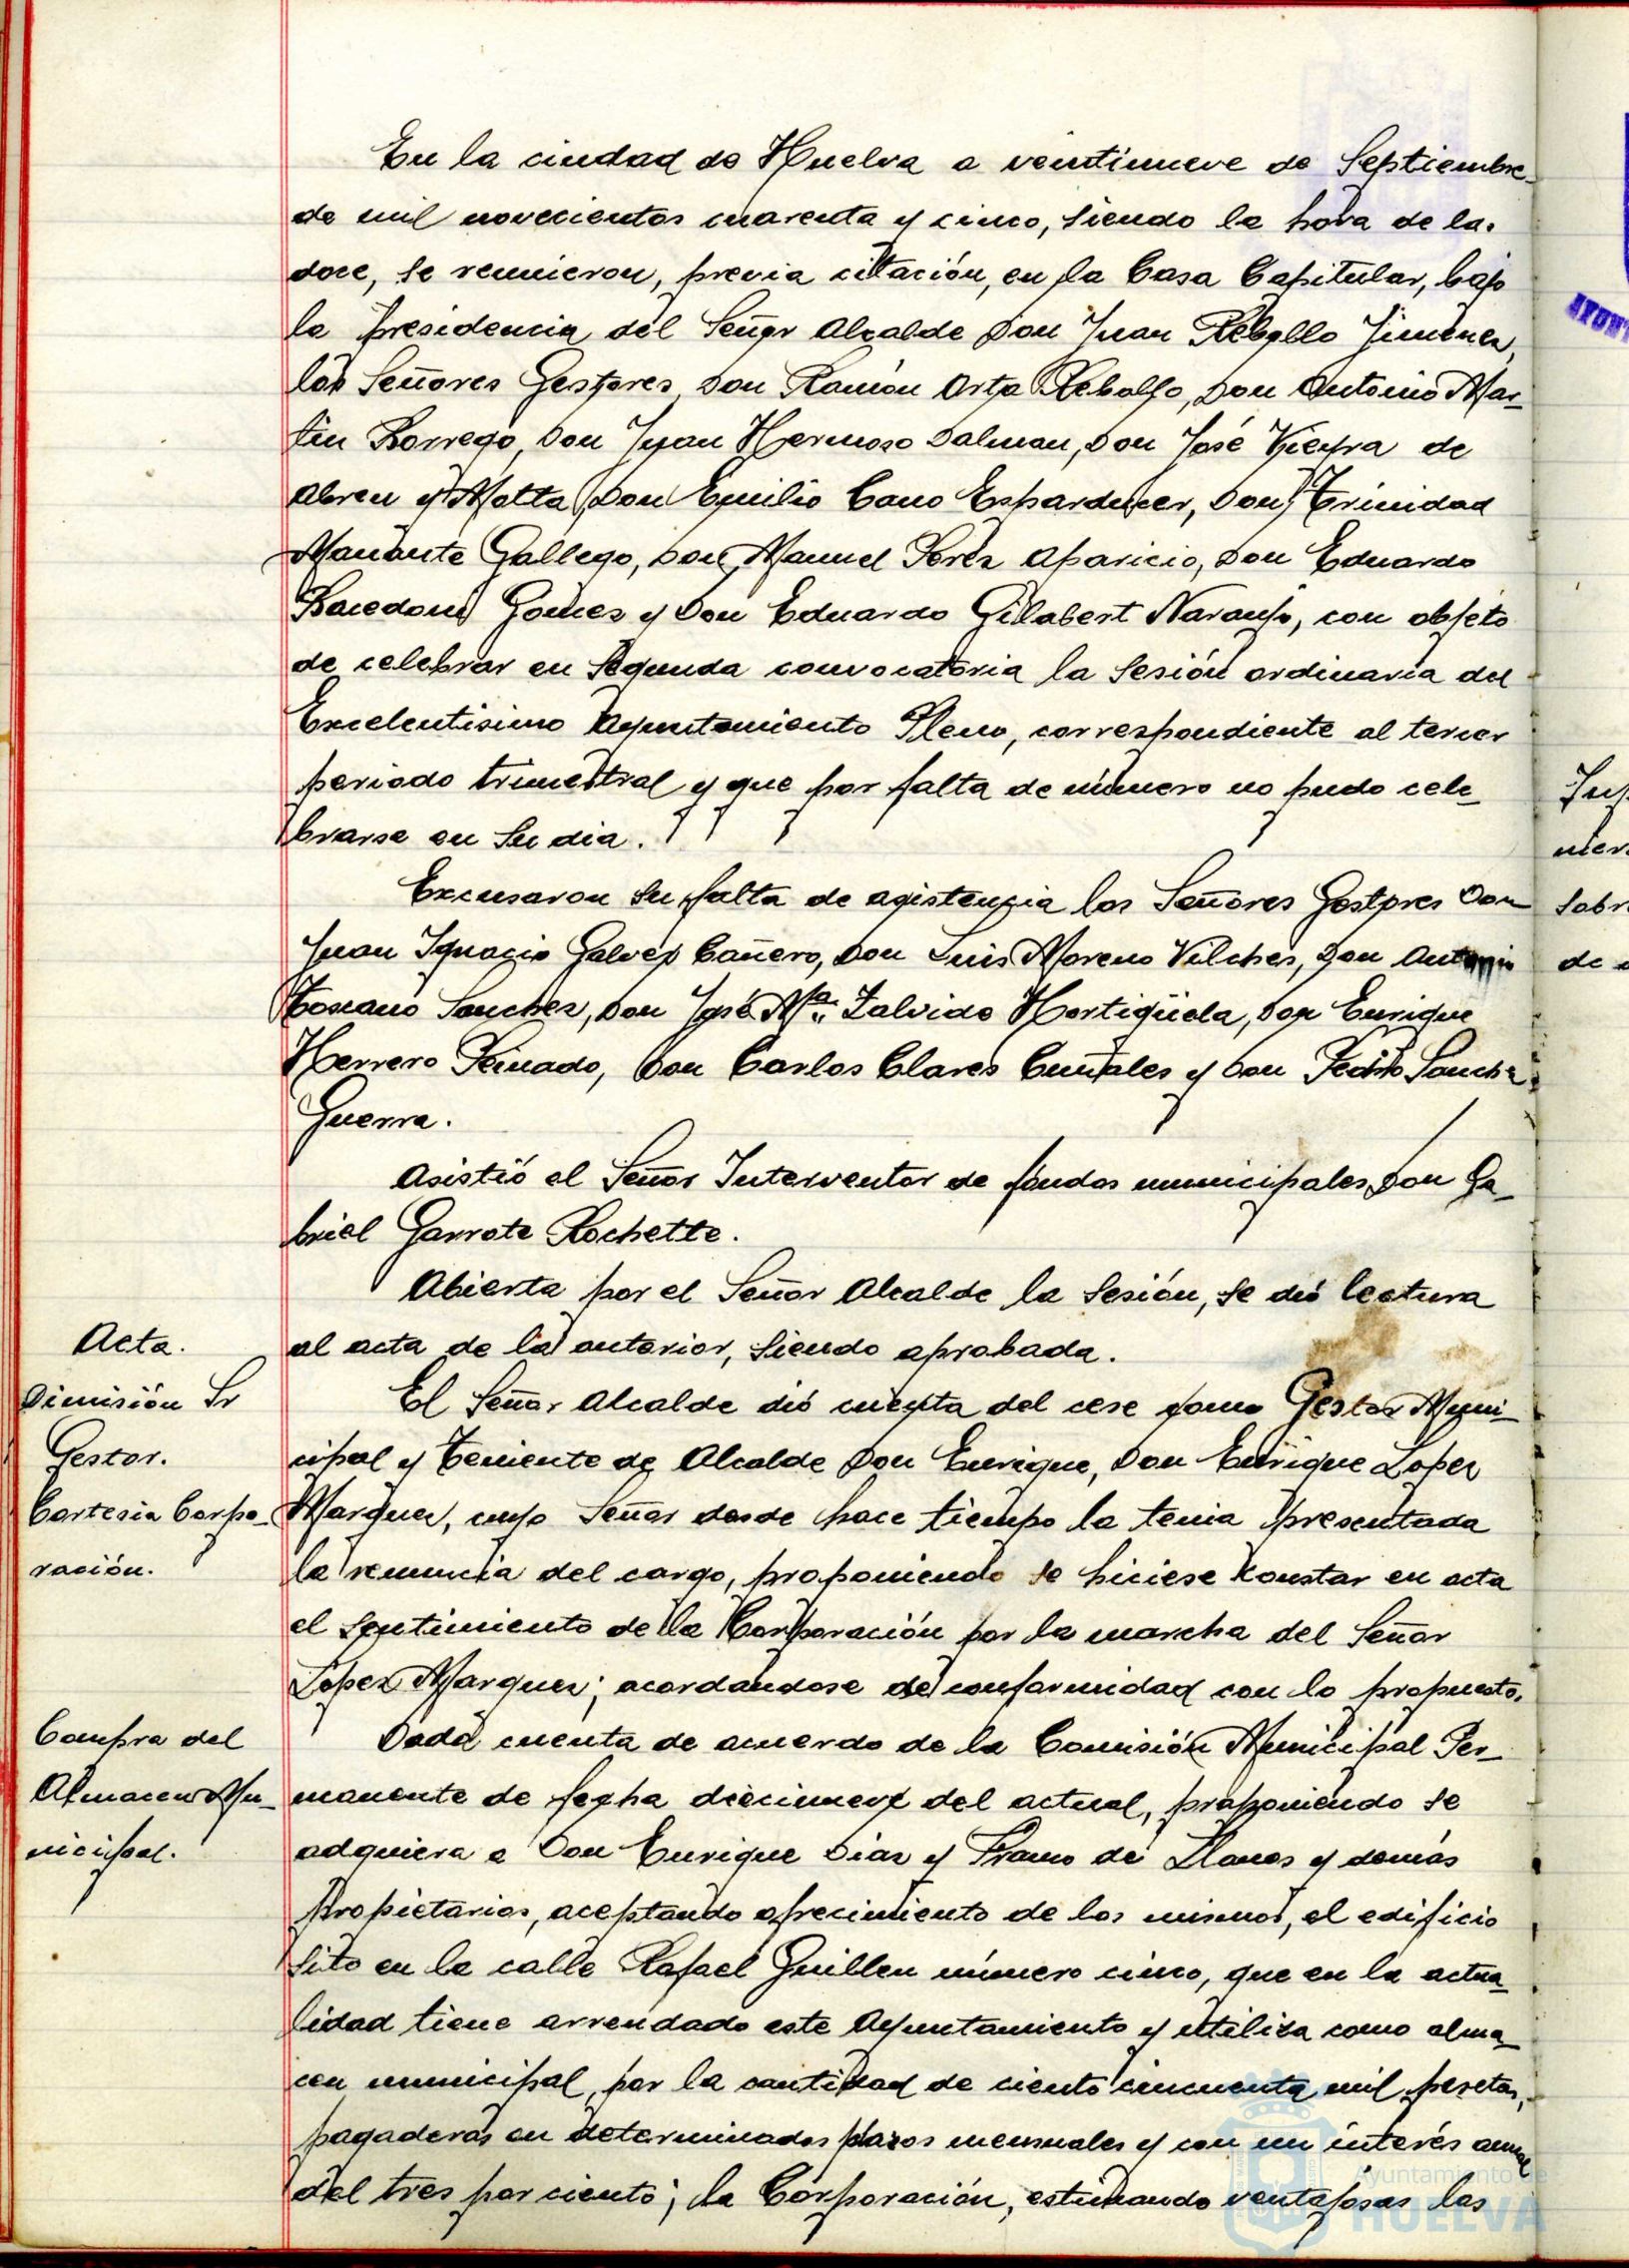 En la ciudad de Huelva a veintinueve de Septiembre
de mil novecientos cuarenta y cinco, siendo la hora de la.
doce, se reunieron, previa citación, en la Casa Capitular, bajo
la presidencia del Señor Alcalde Don Juan Rebollo Jimenez,
los Señores Gestores Don Ramón Orta Rebollo, Don Antonio Mar-
tin Borrego, Don Juan Hermoso Dalman, Don José Vieyra de
Abreu y Motta, Don Emilio Cano Esparducer, Don Trinidad
Manante Gallego, Don Manuel Perez Aparicio, Don Eduardo
Racedoni Gomez y Don Eduardo Gilabert Naranjo, con objeto
de celebrar en segunda convocatoria la sesión ordinaria del
Excelentisimo Ayuntamiento Pleno, correspondiente al tercer
periodo trimestral y que por falta de número no pudo cele-
brarse en su dia.
Excusaron su falta de asistencia los Señores Gestores Don
Juan Ignacio Galvez Cañero, Don Luis Moreno Vilches, Don Antonio
Toscano Sanchez, Don José Mª Zalvide Hortigüela, Don Enrique
Herrero Peinado, Don Carlos Clares y Don Pedro Sanchez
Guerra.
Asistió el Señor Interventor de fondos municipales Don Ga-
briel Garrote Rochette.
Abierta por el Señor Alcalde la sesión, se dió lectura
Acta.
al acta de la anterior, siendo aprobada.
Dimisión Sr
Gestor.
Cortesia Corpo-
ración.
El Señor Alcalde dió cuenta del cese como Gestor Muni-
cipal y Teniente de Alcalde Don Enrique, Don Enrique Lopez
Marquez, cuyo Señor desde hace tiempo la tenia presentada
la renuncia del cargo, proponiendo se hiciese constar en acta
el sentimiento de la Corporación por la marcha del Señor
Lopez Marquez; acordandose de conformidad con lo propuesto.
Compra del
Almacen Mu-
nicipal.
Dada cuenta de acuerdo de la Comisión Municipal Per-
manente de fecha diecinueve del actual, proponiendo se
adquiera a Don Enrique Diaz y Franco de Llanos y demás
propietarios, aceptando ofrecimiento de los mismos, el edificio
sito en la calle Rafael Guillen número cinco, que en la actua-
lidad tiene arrendado este Ayuntamiento y utiliza como alma-
cen municipal, por la cantidad de ciento cincuenta mil pesetas,
pagaderas en determinados plazos mensuales y con un interés anual
del tres por ciento; la Corporación, estimando ventajosas las
Ayuntamiento de
HUELVA